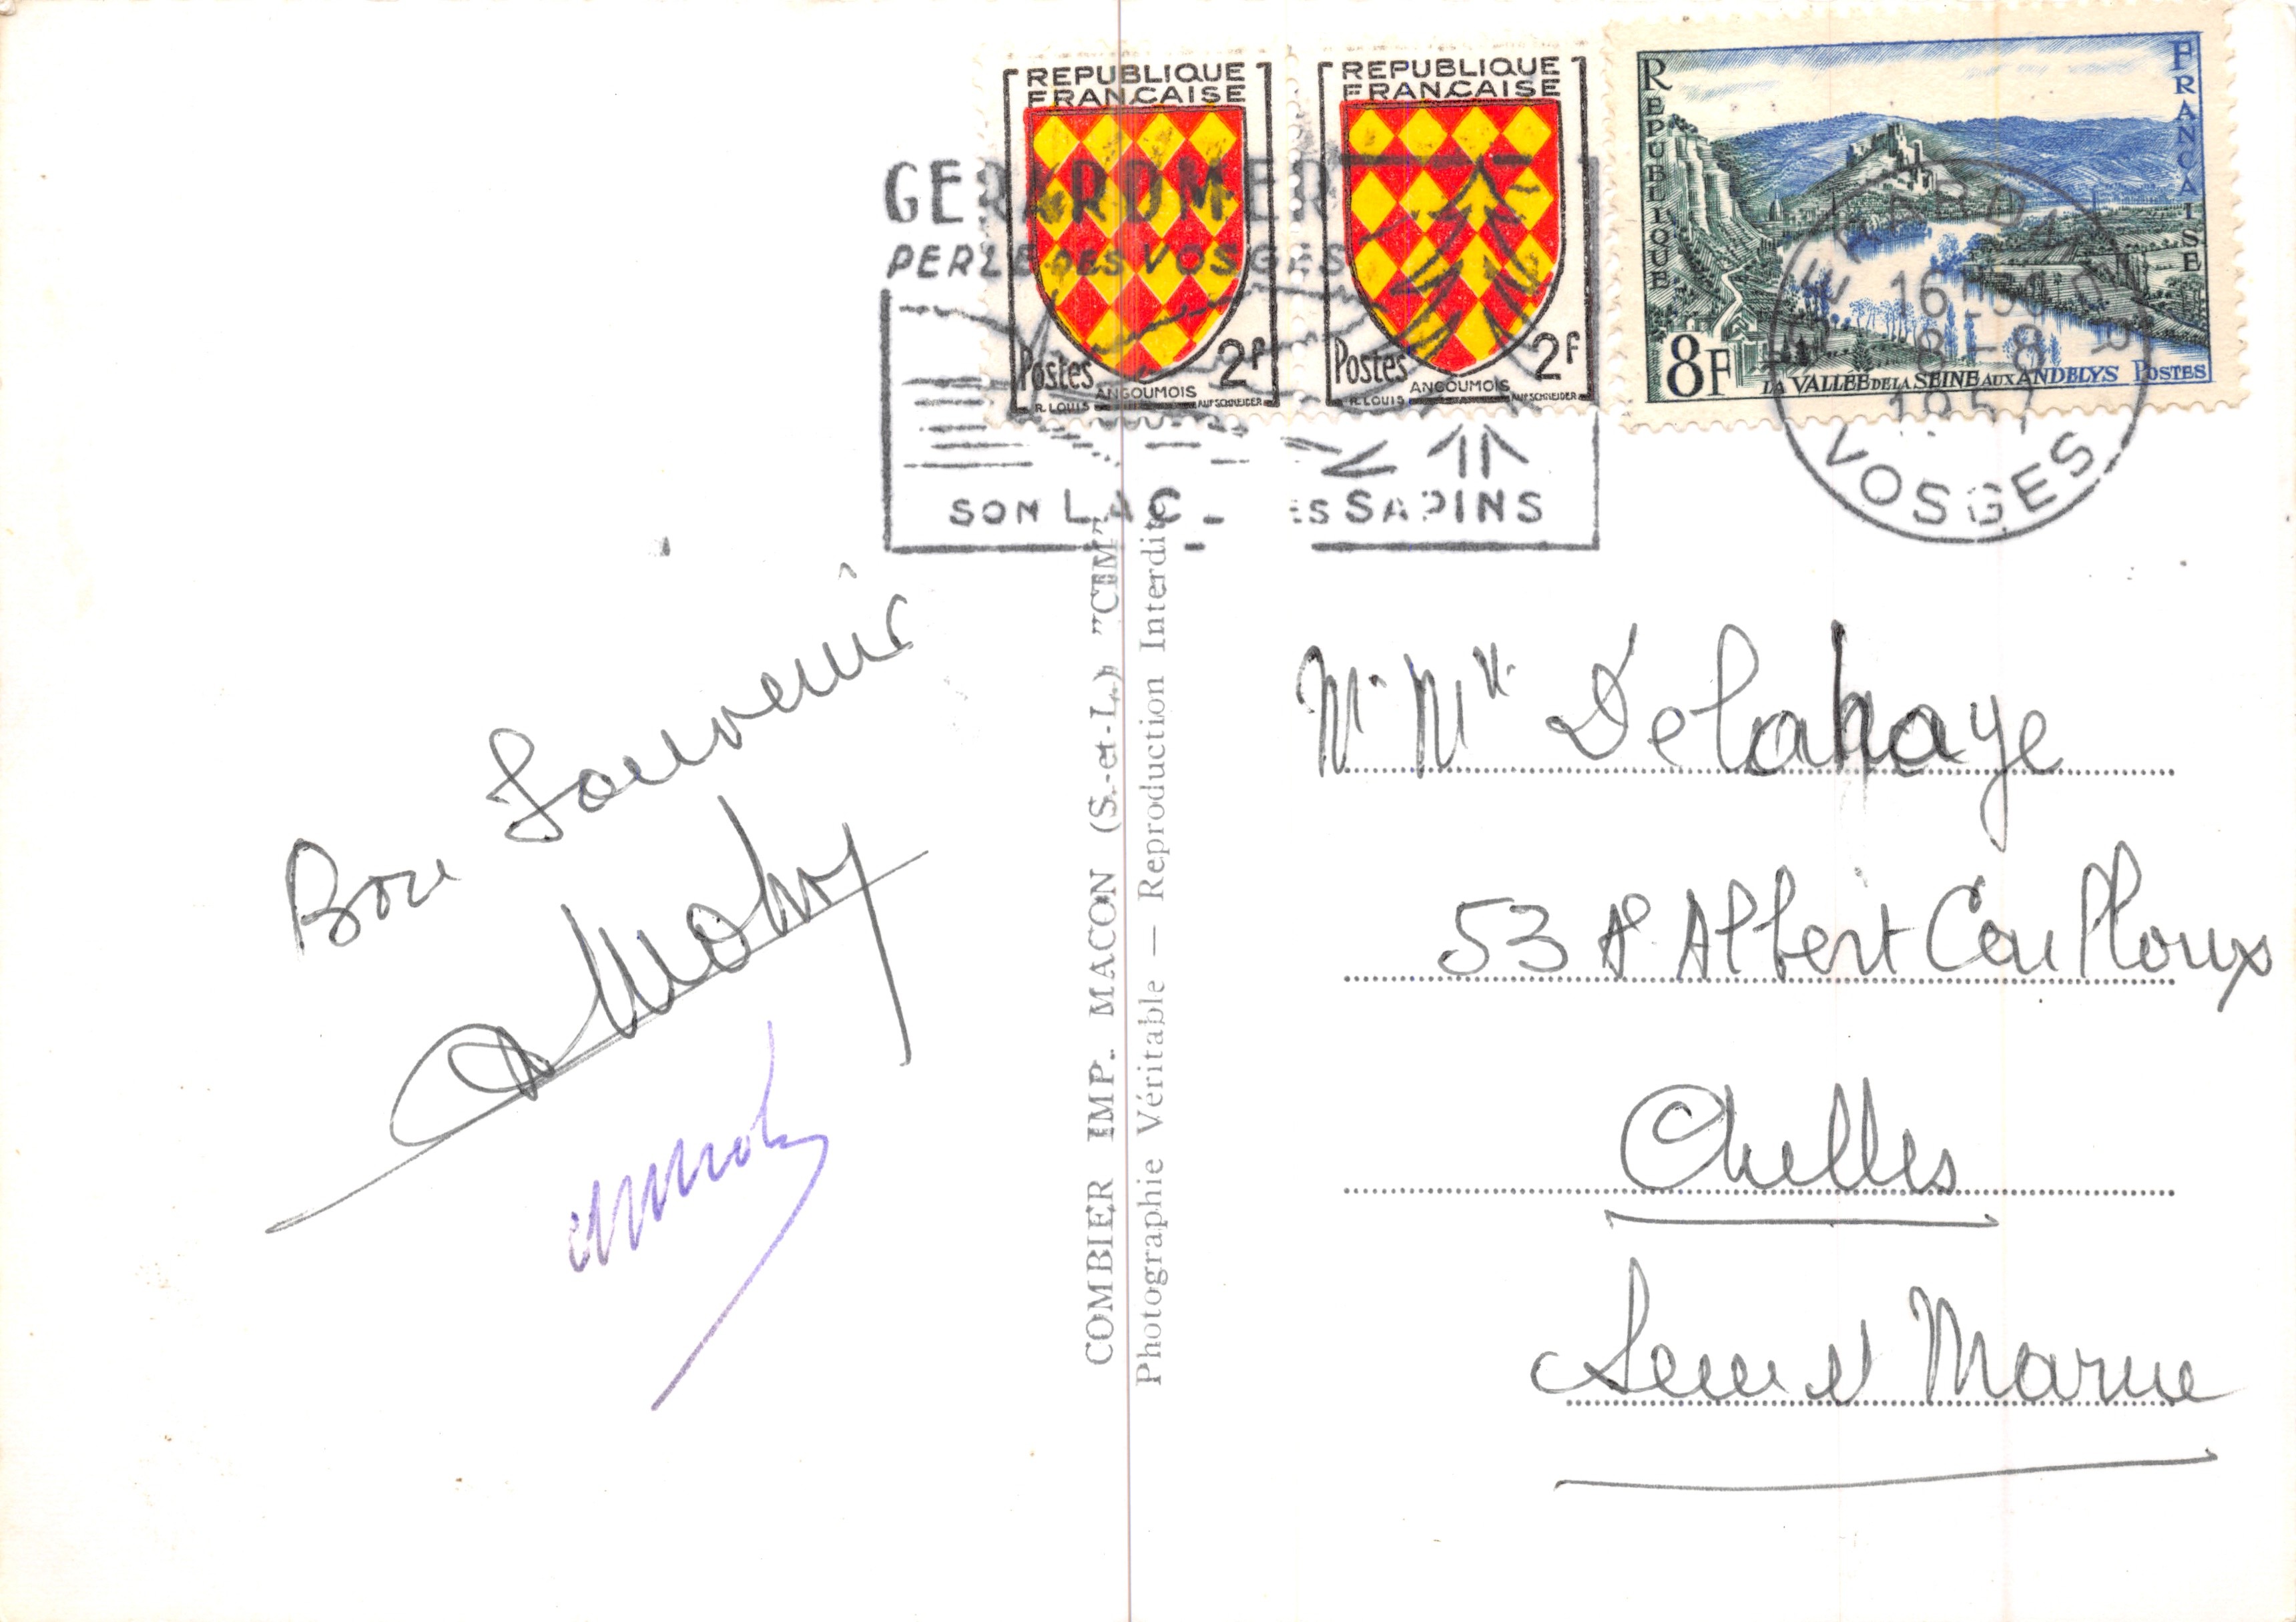 REPUBLIQUE
FRANÇAISE
Postes 2F
ANGOUMOIS
R. LOUIS AUFSCHNEIDER
REPUBLIQUE
FRANÇAISE
Postes 2F
ANGOUMOIS
R. LOUIS AUFSCHNEIDER
REPUBLIQUE
FRANÇAISE
8F LA VALLÉE DE LA SEINE AUX ANDELYS POSTES
GERARDMER
PERLE DES VOSGES
SON LAC - SES SAPINS
GERARDMER
8-8
1957
VOSGES
Bon Souvenir
COMBIER IMP. MACON (S.-et-L.) "CIM"
Photographie Véritable — Reproduction Interdite
Mr Mme Delahaye
53 R Albert Cailloux
Chelles
Seine et Marne